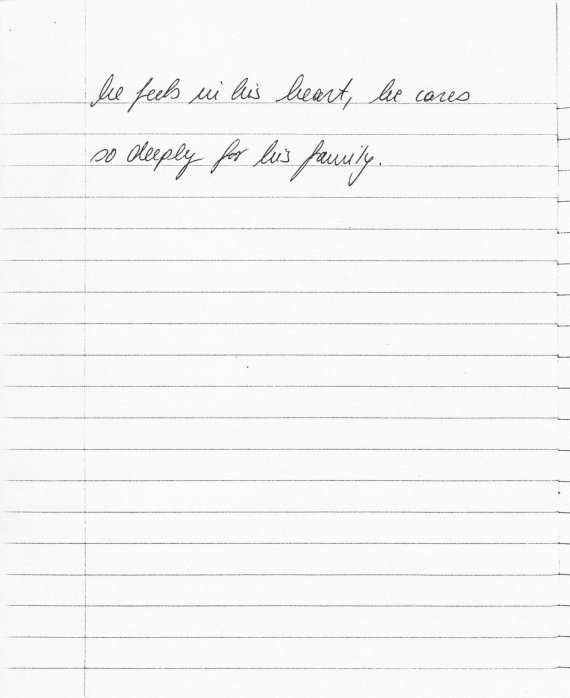 he feels in his heart, he cares
so deeply for his family.